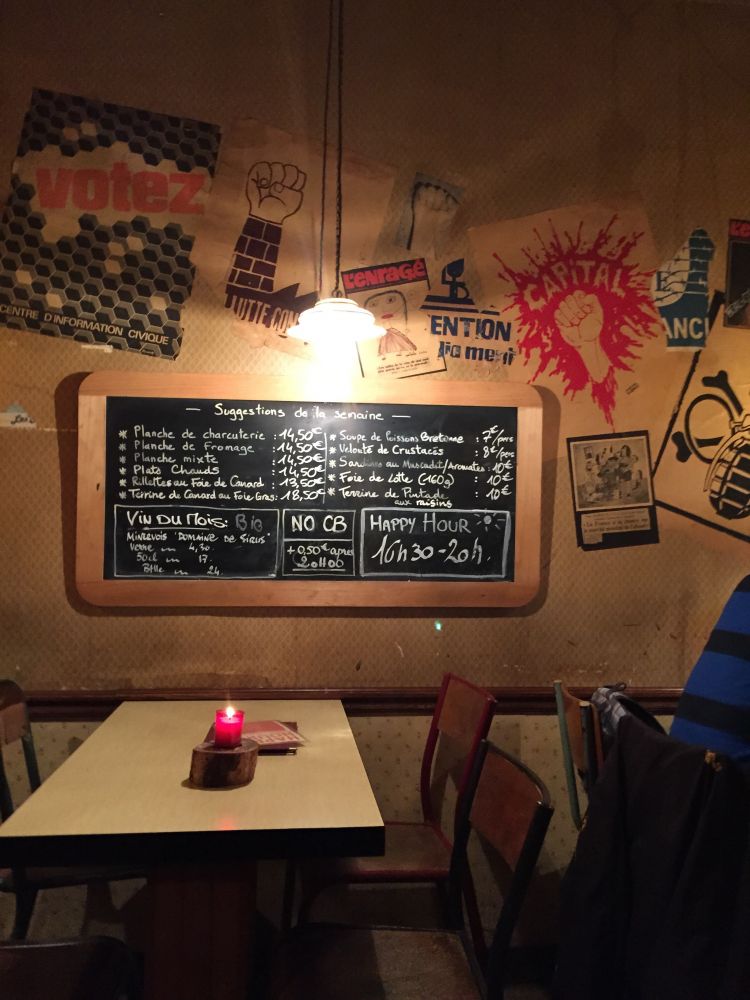 votez
CENTRE D'INFORMATION CIVIQUE
LUTTE CON
L'ENRAGÉ
ENTION
CAPITAL
ANCI
— Suggestions de la semaine —
* Planche de charcuterie : 14,50€
* Planche de Fromage : 14,50€
* Planche mixte : 14,50€
* Plats Chauds : 14,50€
* Rillettes au Foie de Canard : 13,50€
* Terrine de Canard au Foie Gras : 18,50€
* Soupe de Poissons Bretonne : 7€/pers
* Velouté de Crustacés : 8€/pers
* Sardines au Muscadet/Aromates : 10€
* Foie de Lotte (160g) : 10€
* Terrine de Pintade : 10€
aux raisins
VIN DU MOIS: Bio
MINERVOIS "DOMAINE DE SIRUS"
Verre 4,30
50cl 17
Btlle 24
NO CB
+ 0,50€ après
20H00
HAPPY HOUR
16h30-20h.